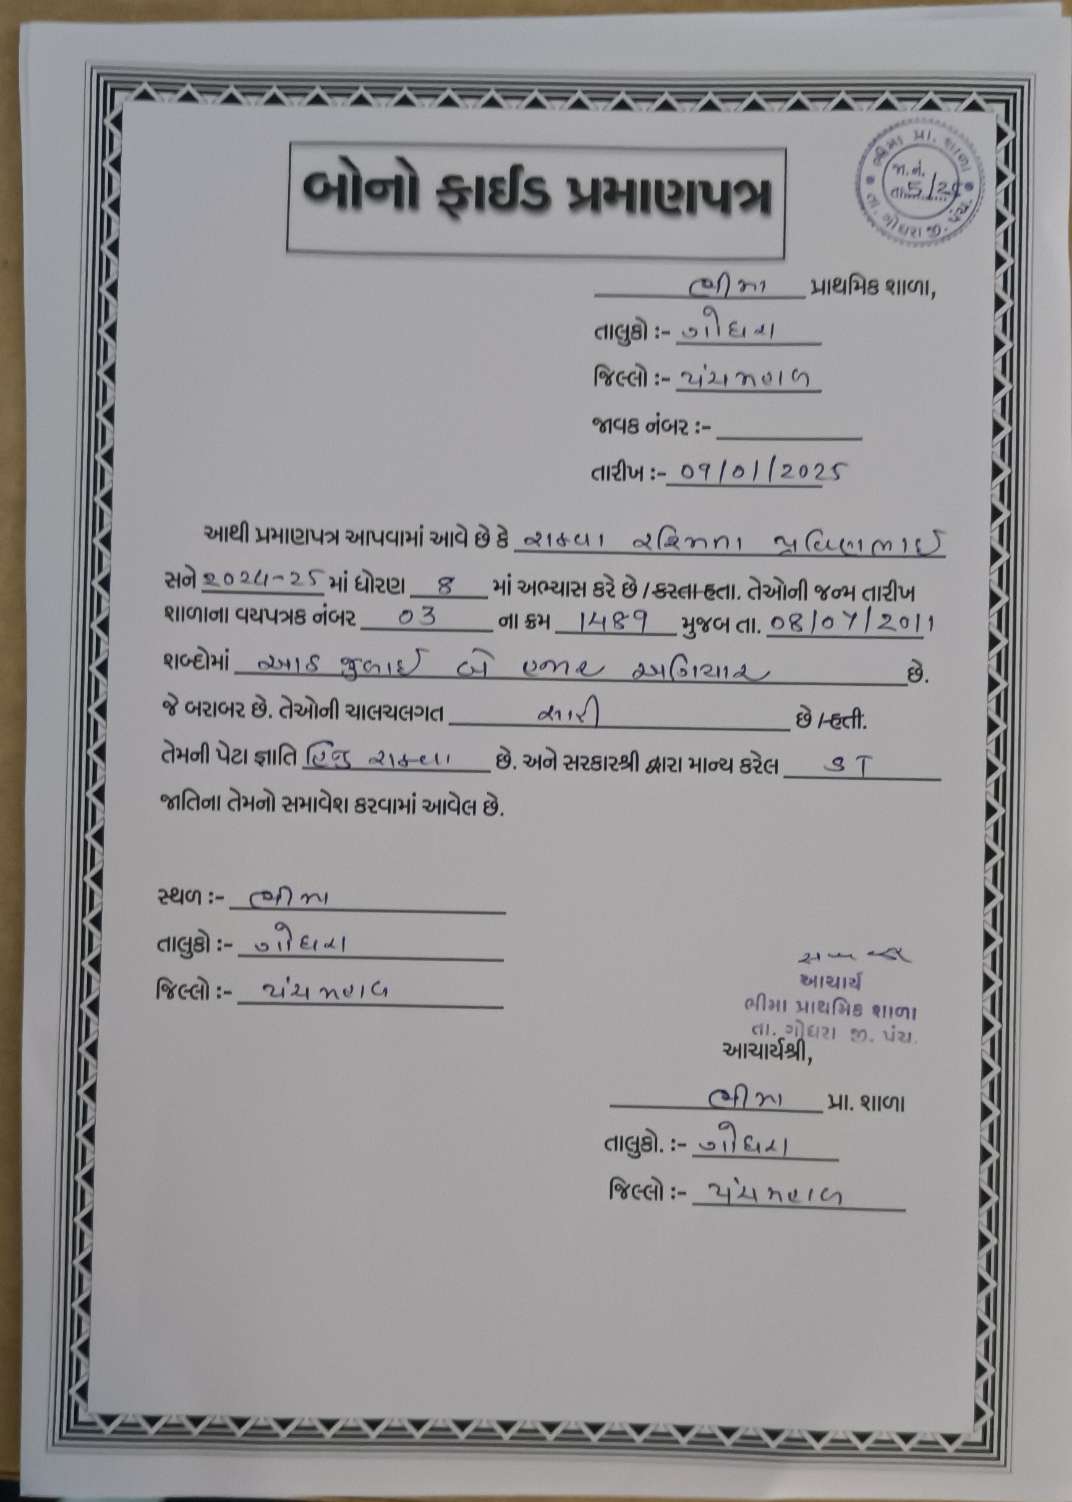 બોનો ફાઈડ પ્રમાણપત્ર
ભીમા પ્રા. શાળા
જા.નં.
તા. 5/24
તા. ગોધરા જી. પંચ.
ભીમા પ્રાથમિક શાળા,
તાલુકો :- ગોધરા
જિલ્લો :- પંચમહાલ
જાવક નંબર :-
તારીખ :- 09/01/2025
આથી પ્રમાણપત્ર આપવામાં આવે છે કે રાઠવા પ્રવિણભાઈ
સને ૨૦૨૪-૨૫ માં ધોરણ 8 માં અભ્યાસ કરે છે / કરતા હતા. તેઓની જન્મ તારીખ
શાળાના વયપત્રક નંબર 03 ના ક્રમ 1489 મુજબ તા. 08/07/2011
શબ્દોમાં આઠ જુલાઈ બે હજાર અગિયાર છે.
જે બરાબર છે. તેઓની ચાલચલગત સારી છે / હતી.
તેમની પેટા જ્ઞાતિ હિન્દુ રાઠવા છે. અને સરકારશ્રી દ્વારા માન્ય કરેલ ST
જાતિના તેમનો સમાવેશ કરવામાં આવેલ છે.
સ્થળ :- ભીમા
તાલુકો :- ગોધરા
જિલ્લો :- પંચમહાલ
આચાર્ય
ભીમા પ્રાથમિક શાળા
તા. ગોધરા જી. પંચ.
આચાર્યશ્રી,
ભીમા પ્રા. શાળા
તાલુકો. :- ગોધરા
જિલ્લો :- પંચમહાલ